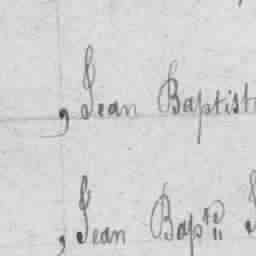 , Jean Baptist
, Jean Bapte